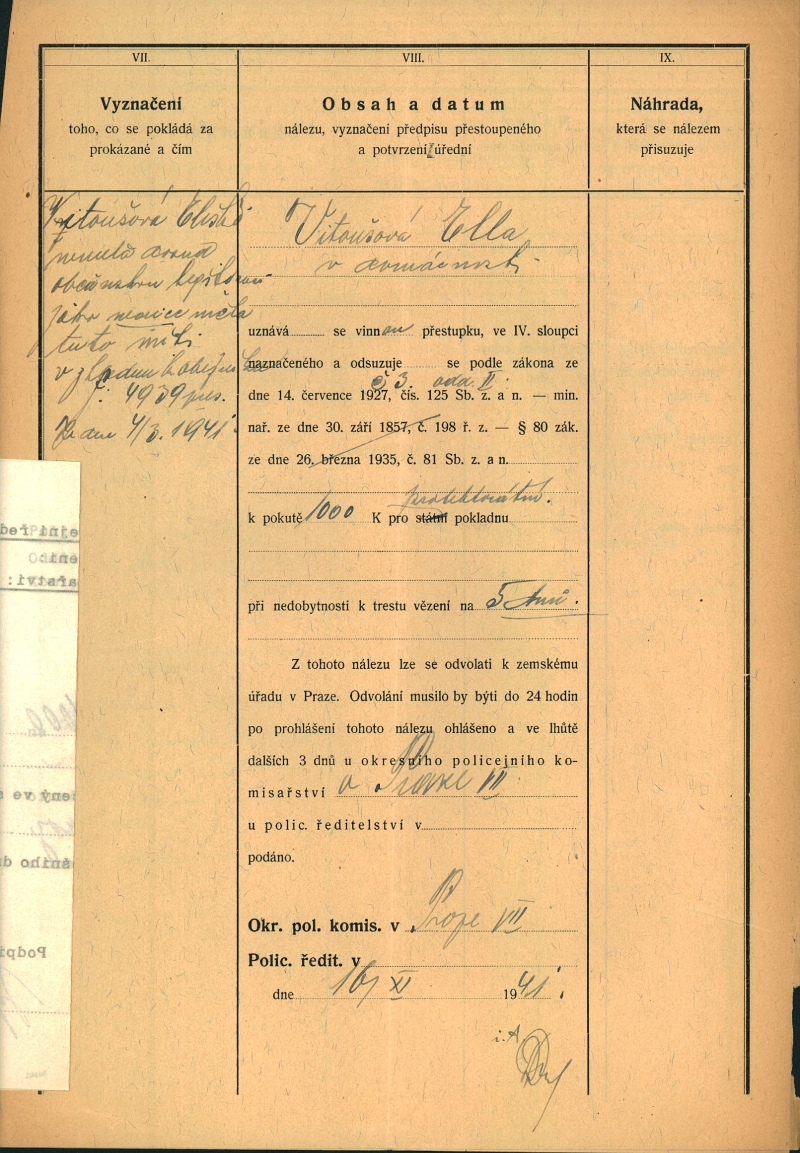 VII.
Vyznačení
toho, co se pokládá za
prokázané a čím
Vitoušová
neměla
občanskou
jako měla
tuto míti
v
č. 4939 pres.
ze dne 4/3. 1941
VIII.
Obsah a datum
nálezu, vyznačení předpisu přestoupeného
a potvrzení úřední
Vitoušová Ella
v domácnosti
uznává se vinnou přestupku, ve IV. sloupci
naznačeného a odsuzuje se podle zákona ze
č 3. odd. II.
dne 14. července 1927, čís. 125 Sb. z. a n. — min.
nař. ze dne 30. září 1857, č. 198 ř. z. — § 80 zák.
ze dne 26. března 1935, č. 81 Sb. z. a n.
protektorátní.
k pokutě 1000 K pro státní pokladnu
při nedobytnosti k trestu vězení na 5 dnů.
Z tohoto nálezu lze se odvolati k zemskému
úřadu v Praze. Odvolání musilo by býti do 24 hodin
po prohlášení tohoto nálezu ohlášeno a ve lhůtě
dalších 3 dnů u okresního policejního ko-
misařství v Praze VII
u polic. ředitelství v
podáno.
Okr. pol. komis. v Praze VII
Polic. ředit. v
dne 16/XI 1941.
i. A.
IX.
Náhrada,
která se nálezem
přisuzuje